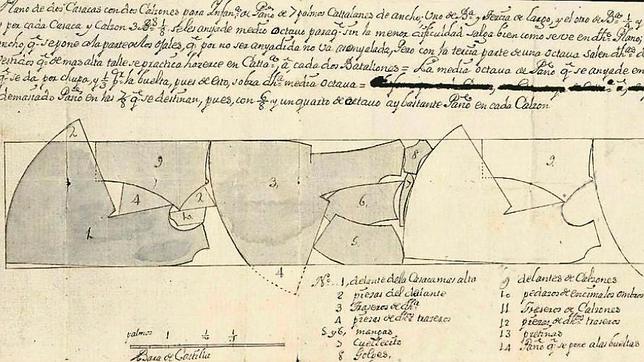 Plano de dos Casacas con dos Calzones para Infan.ª de Paño de 7 palmos Cattalanes de ancho, Uno de B.ª y Tercia de largo, y el otro de B.ª
y por cada Casaca y Calzon 3 B.ª se les anyade medio octavo para q.e sin la menor dificultad salga bien como se ve en dho Plano,
ancho, q.e se pone a la parte de los ojales, q.e por no ser anyadida no va senyalada, Pero con la tercia parte de una octava salen
Vestidos q.e de mas alta talle se practica hacerse en cada dos Batallones = La media octava de Paño q.e se anyade en
q.e se da por chupa, y la buelta, pues de esto, sobra dha media octava =
demasiado Paño en las 7/8 q.e se destinan, pues, con 6/8 y un quarto de octavo ay bastante Paño en cada Calzon
2 9 8 2 9
4 2 3 7 4
10 6
1 5
4
Nº 1, delante de la Casaca mas alta
2 piezas del delante
3 Traseros de dha
4 piezas de dhos traseros
5 y 6, mangas
7 Cuellecito
8 Golpes,
9 delantes de Calzones
10 pedazos de encima los ombros
11 Traseros de Calzones
12 piezas de dhos traseros
13 pretinas
14 Paño q.e se pone a las bueltas
palmos 1
Bara de Castilla